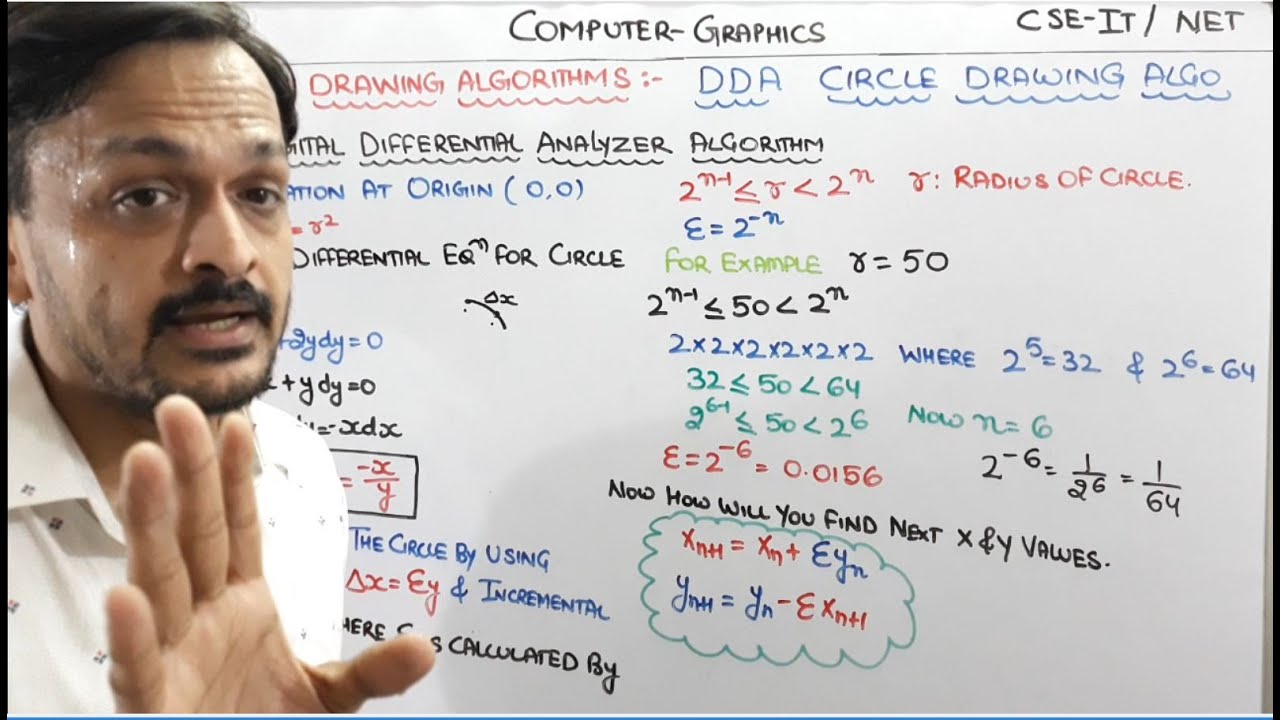 COMPUTER-GRAPHICS
CSE-IT / NET
DRAWING ALGORITHMS:- DDA CIRCLE DRAWING ALGO
GITAL DIFFERENTIAL ANALYZER ALGORITHM
ATION AT ORIGIN (0,0)
= r²
DIFFERENTIAL EQⁿ FOR CIRCLE
Δx
2ydy=0
+ydy=0
=-xdx
= -x/y
THE CIRCLE BY USING
Δx=Ɛy & INCREMENTAL
HERE IS CALCULATED BY
2ⁿ⁻¹ ≤ r < 2ⁿ r: RADIUS OF CIRCLE.
Ɛ=2⁻ⁿ
FOR EXAMPLE r=50
2ⁿ⁻¹ ≤ 50 < 2ⁿ
2×2×2×2×2×2 WHERE 2⁵=32 & 2⁶=64
32 ≤ 50 < 64
2⁶⁻¹ ≤ 50 < 2⁶ NOW n=6
Ɛ=2⁻⁶= 0.0156
2⁻⁶ = 1/2⁶ = 1/64
NOW HOW WILL YOU FIND NEXT X & Y VALUES.
xₙ₊₁ = xₙ + Ɛyₙ
yₙ₊₁ = yₙ - Ɛxₙ₊₁